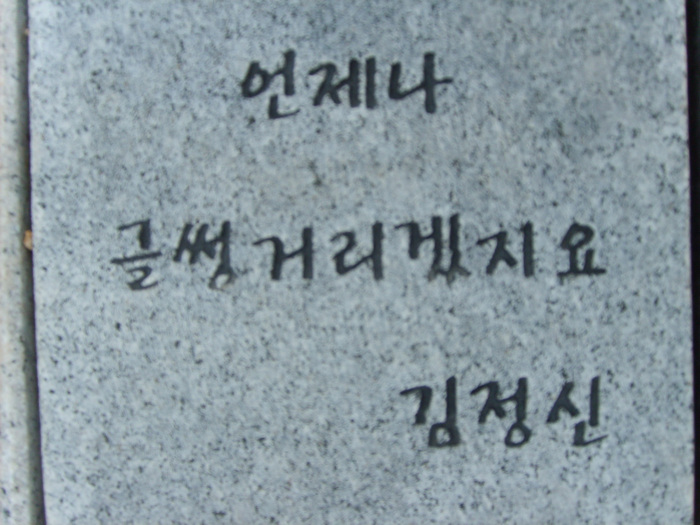 언제나
글썽거리겠지요
김정신